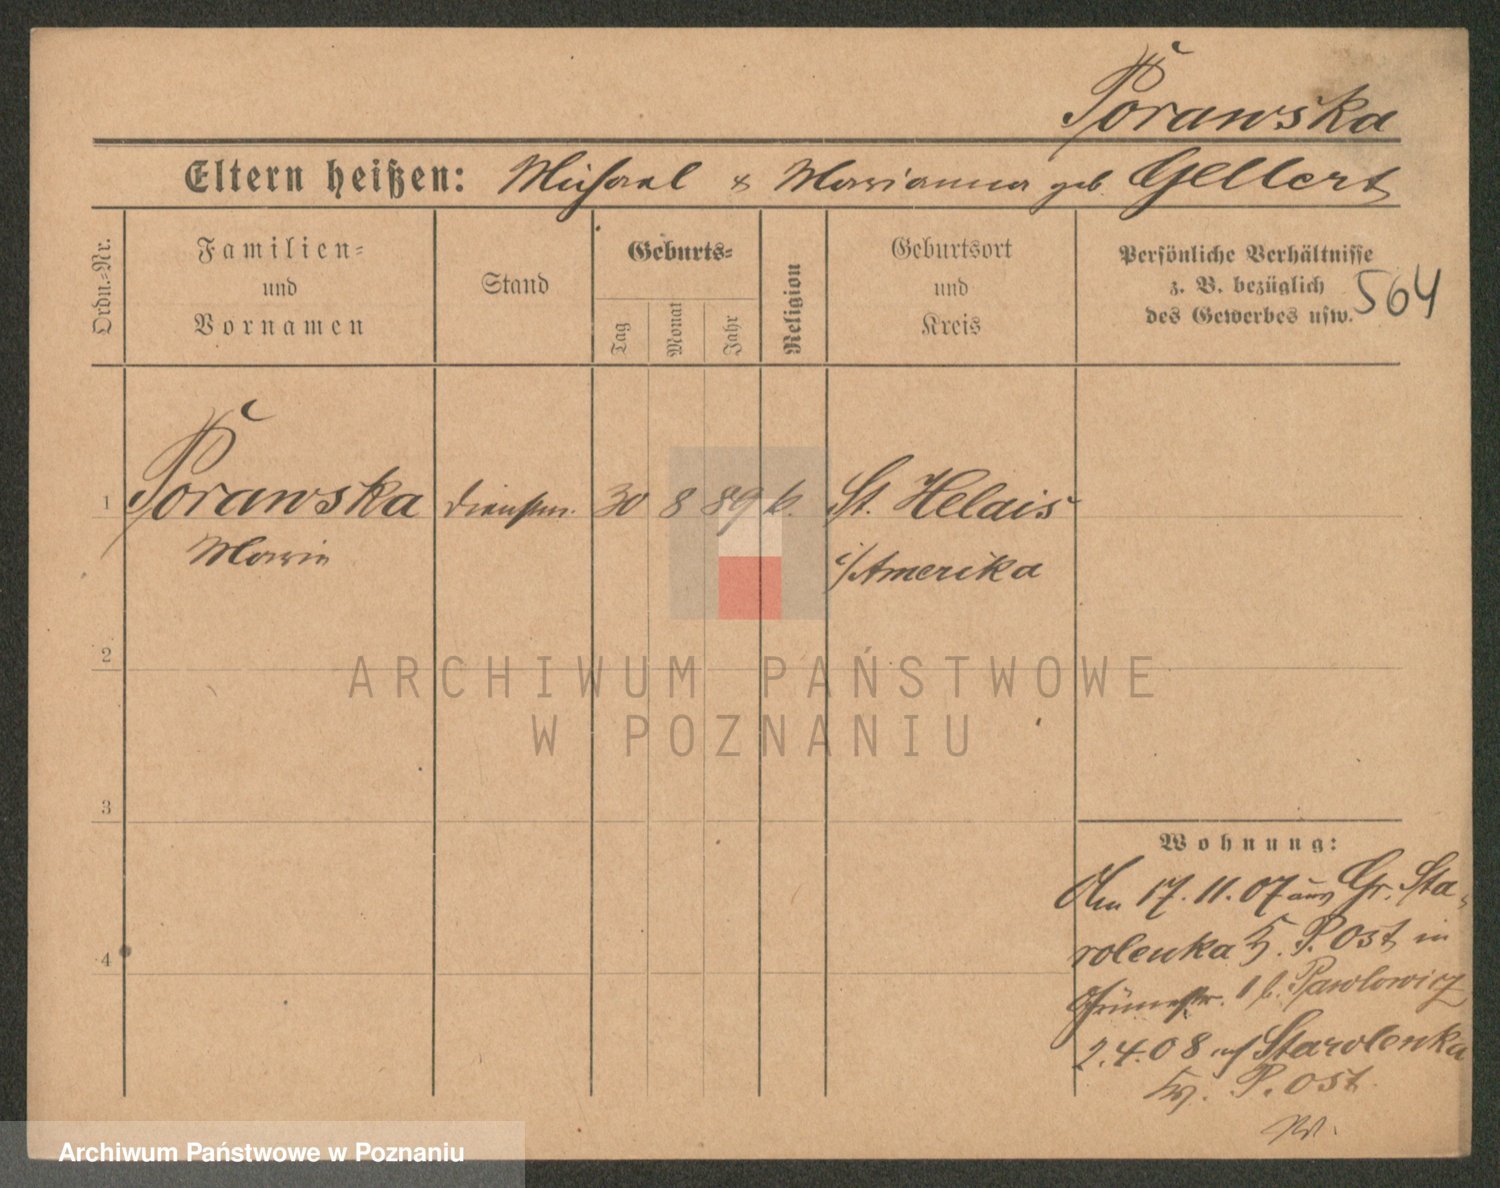 Porawska
Eltern heißen: Michael & Marianna geb. Gellert
Ordn.=Nr.
Familien=
und
Vornamen
Stand
Geburts=
Tag
Monat
Jahr
Religion
Geburtsort
und
Kreis
Persönliche Verhältnisse
z. B. bezüglich
des Gewerbes usw.
564
1
Porawska
Marie
Dienstm.
30
8
89
k.
St. Helais
i/Amerika
2
3
4
Wohnung:
Am 17.11.07 aus Gr. Sta-
rolenka Kr. P. Ost in
1 b. Pawlowicz
2.4.08 auf Starolenka
Kr. P. Ost
ARCHIWUM PAŃSTWOWE
W POZNANIU
Archiwum Państwowe w Poznaniu